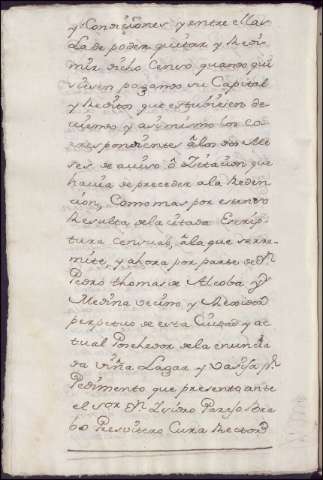 y Condiciones y entre ellas
la de poder quitar y Redi-
mir dicho Censo quando qui
siesen pagando su Capital
y Reditos que estubiesen de
viendo y asi mismo los co
rrespondientes a los dos Me
ses de aviso o Zitacion que
havia de preceder a la Reden
cion, Como mas por extenso
Resulta de la citada Escrip
tura Censual, a la que se rre
mite, y ahora por parte de Dn
Pedro thomas de Alcoba y
Medina vecino y Rexidor
perpetuo de esta Ciudad y ac
tual Posehedor de la enuncia
da viña Lagar y Vasija
Pedimento que presento ante
el Sor Dn Isidro Parejo Bra
bo Presvitero Cura Rector